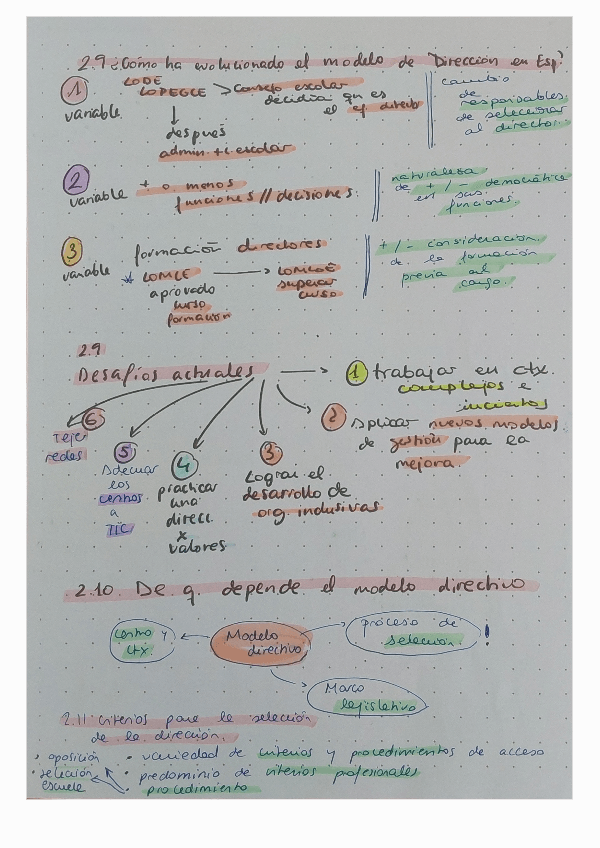 2.9 ¿Cómo ha evolucionado el modelo de Dirección en Esp?
1 variable
LODE
LOPEGCE > Consejo escolar
decidía qn es
el eq directivo
después
admin. + c. escolar
cambio
de
responsables
de seleccionar
al director.
2 variable
+ o menos
funciones // decisiones
naturaleza
de + / - democrática
en sus
funciones.
3 variable
formación directores
* LOMCE → LOMLOE
aprovado
curso
formación
superar
curso
+ / - consideración
de la formación
previa al
cargo.
2.9
Desafíos actuales
1 trabajar en ctx.
complejos e
inciertos
2 Aplicar nuevos modelos
de gestión para la
mejora.
3. Lograr el
desarrollo de
org. inclusivas
4 practicar
una
direcc.
x
valores
5 Adecuar
los
centros
a
TIC
6 Tejer
redes
2.10. De q. depende el modelo directivo
centro y
ctx.
Modelo
directivo
proceso de
selección. !
Marco
legislativo
2.11 criterios para la selección
de la dirección.
• variedad de criterios y procedimientos de acceso
• predominio de criterios profesionales
procedimiento
oposición
selección
escuela